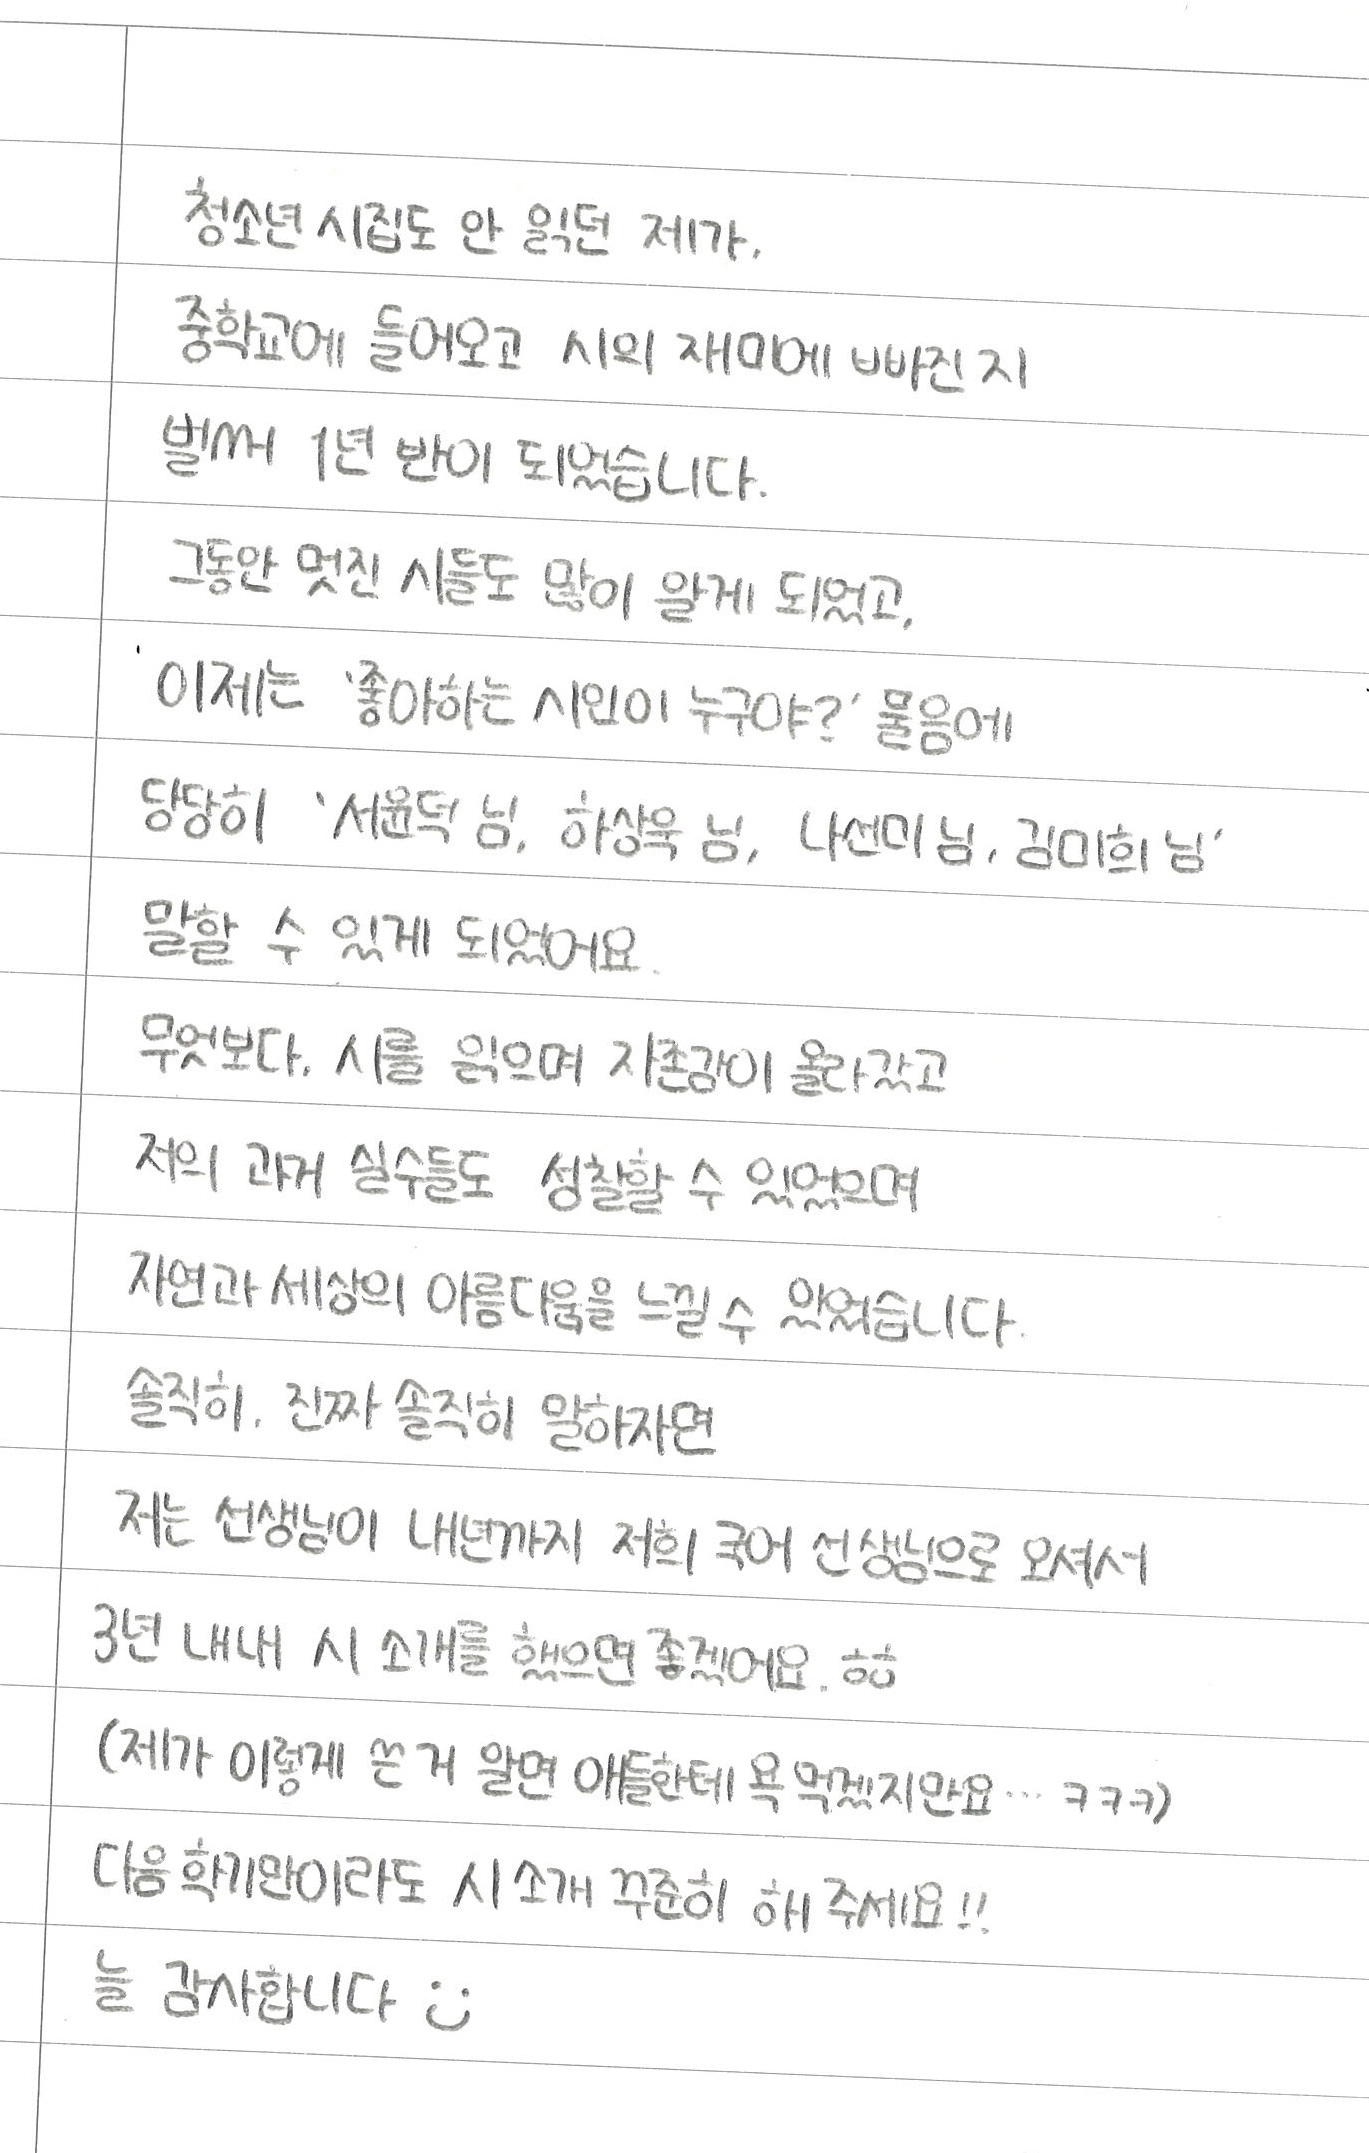 청소년 시집도 안 읽던 제가,
중학교에 들어오고 시의 재미에 빠진 지
벌써 1년 반이 되었습니다.
그동안 멋진 시들도 많이 알게 되었고,
이제는 '좋아하는 시인이 누구야?' 물음에
당당히 '서윤덕 님, 하상욱 님, 나선미 님, 김미희 님'
말할 수 있게 되었어요.
무엇보다, 시를 읽으며 자존감이 올라갔고
저의 과거 실수들도 성찰할 수 있었으며
자연과 세상의 아름다움을 느낄 수 있었습니다.
솔직히, 진짜 솔직히 말하자면
저는 선생님이 내년까지 저희 국어 선생님으로 오셔서
3년 내내 시 소개를 했으면 좋겠어요. ㅎㅎ
(제가 이렇게 쓴 거 알면 애들한테 욕 먹겠지만요… ㅋㅋㅋ)
다음 학기만이라도 시 소개 꾸준히 해 주세요!!
늘 감사합니다 :)